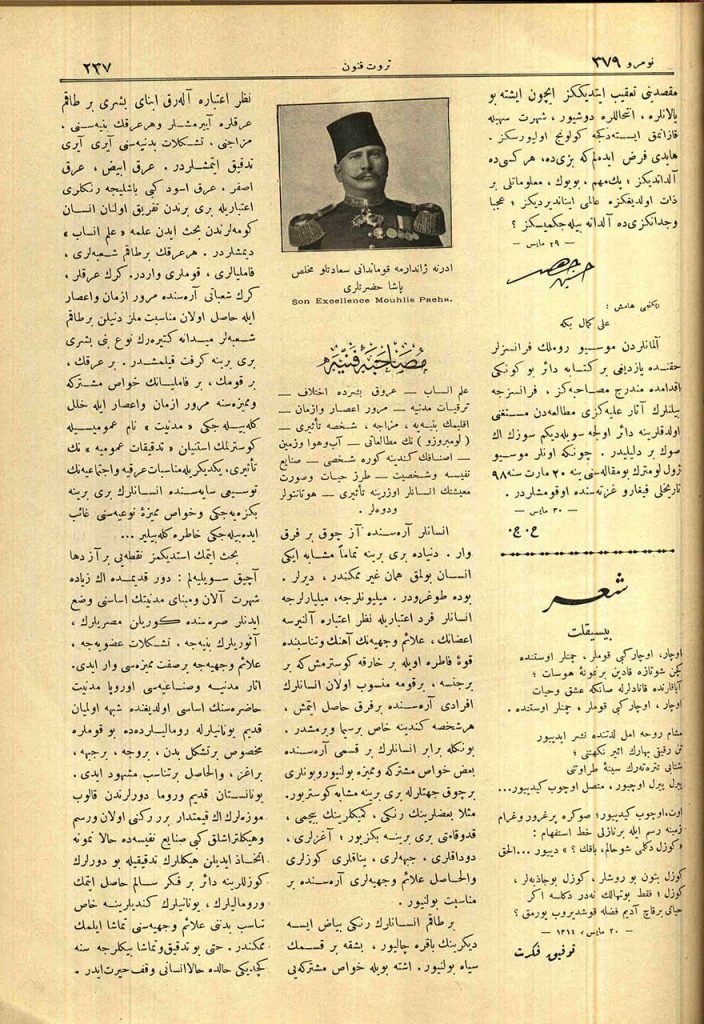 نومرو ٣٧٩
ثروت فنون
٢٣٧
مقصدینی تعقیب ایتدیككز ایچون ایشته بو
یالانلره، انتحاللره دوشیور، شهرت سهیله
قازانمق ایسته‌دكجه كولونج اولیورسكز.
هایدی فرض ایده‌لم‌كه بزی‌ده، هر كسی‌ده
آلداتدیكز؛ یك‌مهم، بویوك، معلوماتلی بر
ذات اولدیغكزه عالمی ایناندیردیكز؛ عجبا
وجدانكزی‌ده آلداته بیله‌جكمیسكز؟
— ٢٩ مایس —
حسین جاهد
یكنجی هامش:
علی كمال بكه
آلمانلردن موسیو روملك فرانسزلر
حقنده یازدیغی بر كتابه دائر بو كونكی
اقدامده مندرج مصاحبه‌كز، فرانسزجه
بیلنلرك آثار علیه‌كزی مطالعه‌دن مستغنی
اولدقلرینه دائر اولجه سویله‌دیكم سوزك اك
صوك بر دلیلیدر. چونكه اونلر موسیو
ژول لومترك بومقاله‌سنی ینه ٢٠ مارت سنه ٩٨
تاریخلی فیغارو غزته‌سنده اوقومشلردر.
— ٣٠ مایس —
ح. ج.
شعر
بیسیقلت
اوچار، اوچار كبی قوملر، چمنلر اوستنده
كچن شوتازه قادین بر نمونهٔ هوسات؛
آیاقارنده قاناد‌لرله صانكه عشق وحیات
اوچار، اوچار كبی قوملر، چمنلر اوستنده.
مشام روحه امل لذتنده نشر ایدییور
تن رقیق بهارك اثیر نكهتنی؛
شتابی تتره‌ته‌رك سینهٔ طراوتنی
پیرل پیرل اوچیور، متصل اوچوب كیدییور...
اوت، اوچوب كیدییور؛ صوكره پرغرور وغرام
زمینه رسم ایله بر نازلی خط استفهام:
«كوزل دكلی شو حالم، باقك؟» دییور... الحق
كوزل بتون بو روشلر، كوزل بو جاذبه‌لر،
كوزل؛ فقط بو تهالك نه‌در دكلسه اكر
حیاتی برقاچ آدیم فضله قوشدیروب یورمق؟
— ٢٠ مایس، ١٣١٤ —
توفیق فكرت
ادرنه ژاندارمه قوماندانی سعادتلو مخلص
پاشا حضرتلری
Son Excellence Mouhlis Pacha.
مصاحبهٔ فنیه
علم انساب — عروق بشرده اختلاف —
ترقیات مدنیه — مرور اعصار وازمان —
اقلیمك بنیه‌یه، مزاجه، شخصه تأثیری —
(لومبروزو) نك مطالعاتی — آب‌وهوا وزمین
— اصنافك كندینه كوره شخصی — صنایع
نفیسه وشخصیت — طرز حیات وصورت
معیشتك انسانلر اوزرینه تأثیری — هوتانتولر
ودوه‌لر.
انسانلر آره‌سنده آز چوق بر فرق
وار. دنیاده بری برینه تماماً مشابه ایكی
انسان بولمق همان غیر ممكندر، دیرلر.
بوده طوغرودر. میلیونلرجه، میلیارلرجه
انسانلر فرد اعتباریله نظر اعتباره آلنیرسه
اعضانك، علائم وجهیه‌نك آهنك وتناسبنده
قوهٔ فاطره اویله بر خارقه كوسترمش‌كه بر
برجنسه، برقومه منسوب اولان انسانلرك
افرادی آره‌سنده برفرق حاصل ایتمش،
هرشخصه كندینه خاص برسیما ویرمشدر.
بونكله برابر انسانلرك بر قسمی آره‌سنده
بعض خواص مشتركه وممیزه بولنیوروبونلری
برچوق جهتلرله بری برینه مشابه كوستریور.
مثلا بعضلرینك رنكی، كمیكلرینك بیچمی،
قدوقامتی بری برینه بكزیور؛ آغزلری،
دوداقلری، جبهه‌لری، یناقلری كوزلری
والحاصل علائم وجهیه‌لری آره‌سنده بر
مناسبت بولنیور.
بر طاقم انسانلرك رنكی بیاض ایسه
دیكرینك باقره چالیور، بشقه بر قسمك
سیاه بولنیور. اشته بویله خواص مشتركه‌یی
نظر اعتباره آله‌رق ابنای بشری بر طاقم
عرقلره آییرمشلر وهرعرقك بنیه‌سنی،
مزاجنی، تشكلات بدنیه‌سنی آیری آیری
تدقیق ایتمشلردر. عرق ابیض، عرق
اصفر، عرق اسود كبی باشلیجه رنكلری
اعتباریله بری برندن تفریق اولنان انسان
كومه‌لرندن بحث ایدن علمه «علم انساب»
دیمشلردر. هرعرقك برطاقم شعبه‌لری،
فامیلیالری، قوملری واردر. كرك عرقلر،
كرك شعباتی آره‌سنده مرور ازمان واعصار
ایله حاصل اولان مناسبت ملز دنیلن برطاقم
شعبه‌لر میدانه كتیره‌رك نوع بنی بشری
بری برینه كرفت قیلمشدر. بر عرقك،
بر قومك، بر فامیلیانك خواص مشتركه
وممیزه‌سنه مرور ازمان واعصار ایله خلل
كله‌بیله‌جكی «مدنیت» نام عمومیسیله
كوسترلمك استنیلن «تدقیقات عمومیه» نك
تأثیری، یكدیكریله‌مناسبات عرقیه واجتماعیه‌نك
توسیعی سایه‌سنده انسانلرك بری برینه
بكزه‌یه‌جكی وخواص ممیزهٔ نوعیه‌سنی غائب
ایده‌بیله‌جكی خاطره كله‌بیلیر...
بحث ایتمك استدیكمز نقطه‌یی بر آز دها
آچیق سویلیه‌لم: دور قدیمده اك زیاده
شهرت آلان ومبنای مدنیتك اساسنی وضع
ایدنلر صره‌سنده كوریلن مصریلرك،
آثوریلرك بنیه‌جه، تشكلات عضویه‌جه،
علائم وجهیه‌جه برصفت ممیزه‌سی وار ایدی.
آثار مدنیه وصناعیه‌سی اوروپا مدنیت
حاضره‌سنك اساسی اولدیغنده شبهه اولمیان
قدیم یونانیلرله رومالیلرده‌ده بو قوملره
مخصوص برتشكل بدن، بروجه، برجبهه،
براغز، والحاصل برتناسب مشهود ایدی.
یونانستان قدیم وروما دورلرندن قالوب
موزه‌لرك اك قیمتدار بر ركنی اولان ورسم
وهیكلتراشلق كبی صنایع نفیسه‌ده حالا نمونه
اتخاذ ایدیلن هیكللرك تدقیقیله بو دورلرك
كوزللرینه دائر بر فكر سالم حاصل ایتمك
ورومالیلرك، یونانیلرك كندیلرینه خاص
تناسب بدنی علائم وجهیه‌سنی تماشا ایلمك
ممكندر. حتی بو تدقیق وتماشا بیكلرجه سنه
كچدیكی حالده حالاانسانی وقف حیرت ایدر.